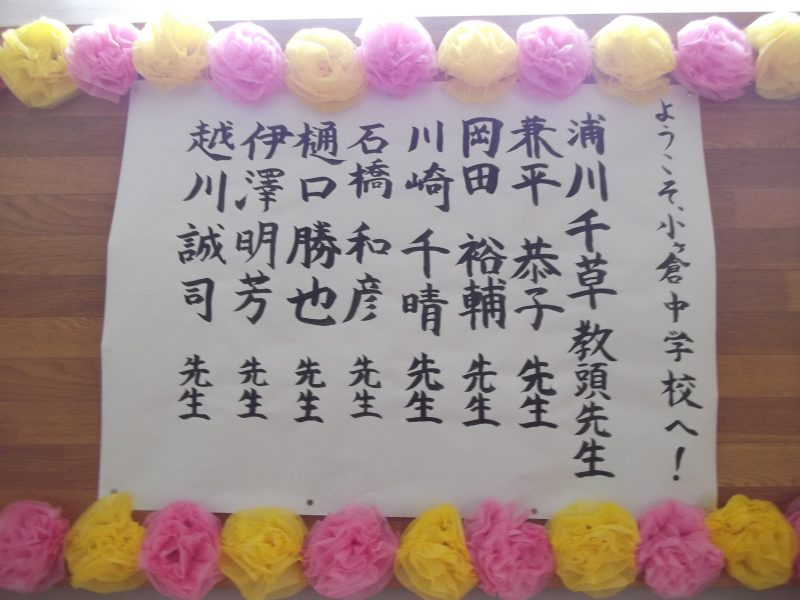 ようこそ、小ヶ倉中学校へ！
浦川千草教頭先生
兼平 恭子 先生
岡田 裕輔 先生
川崎 千晴 先生
石橋 和彦 先生
樋口 勝也 先生
伊澤 明芳 先生
越川 誠司 先生